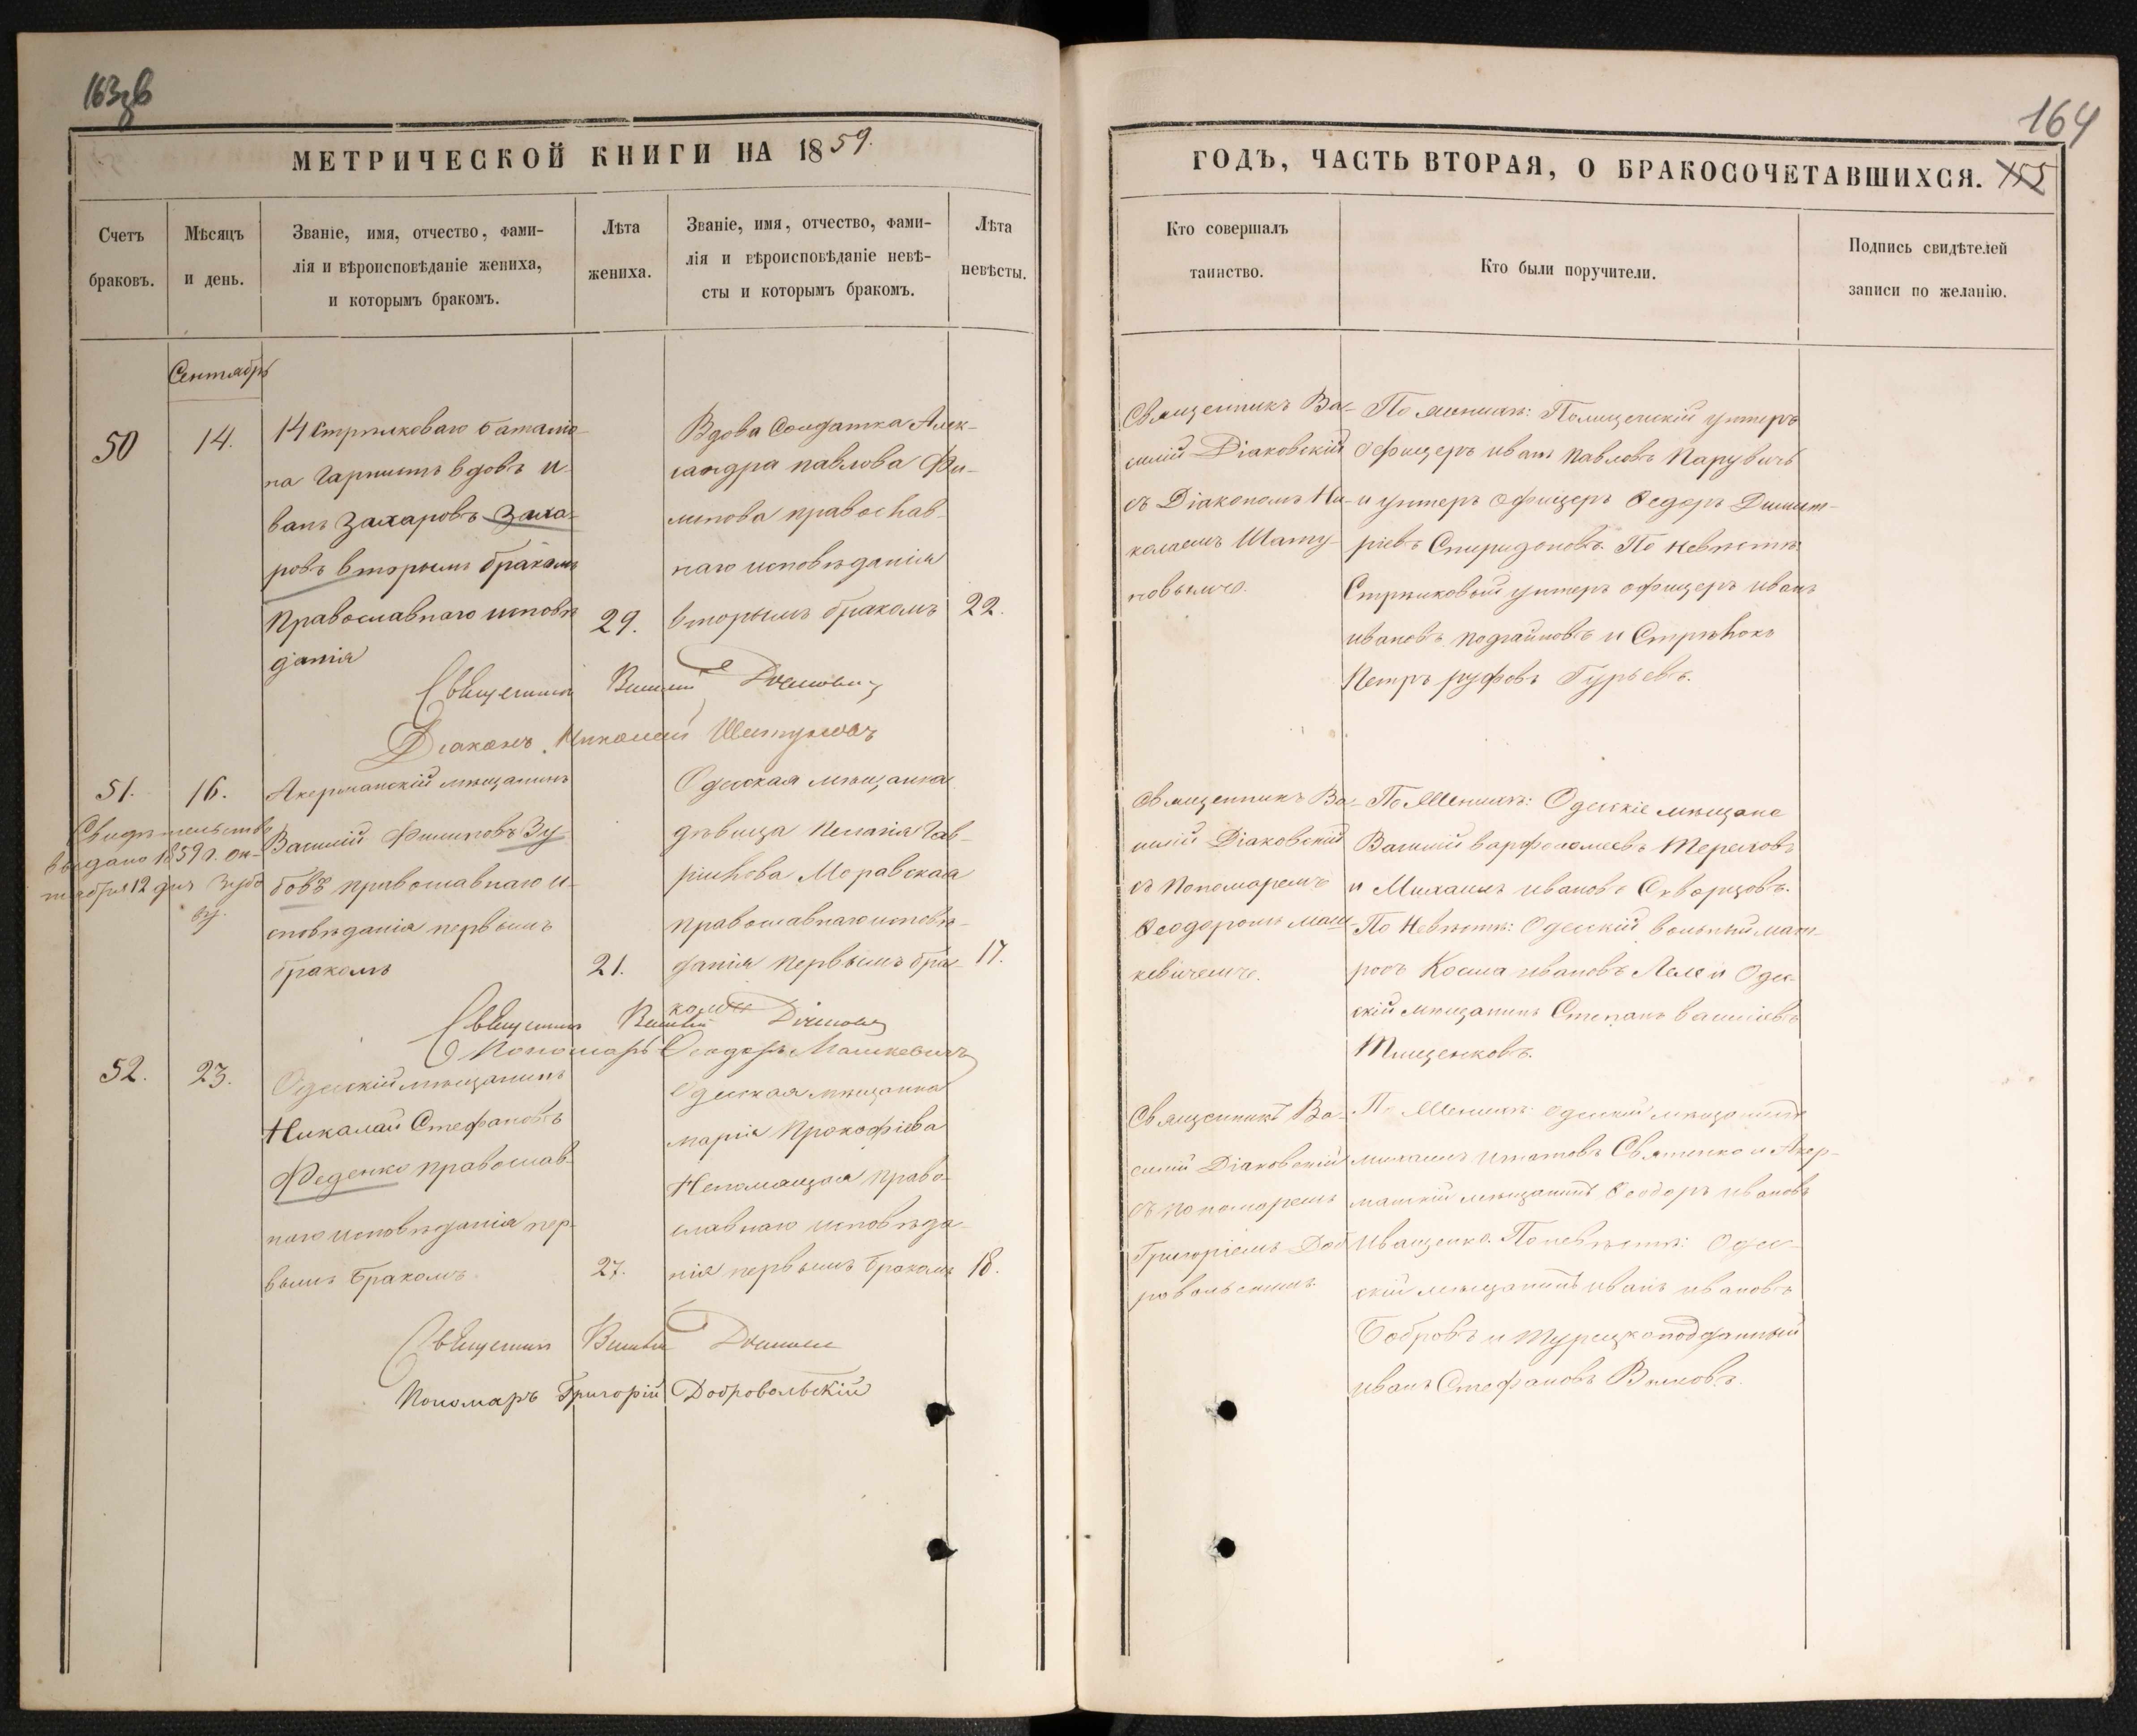 163зв
МЕТРИЧЕСКОЙ КНИГИ НА 1859.
Счетъ
браковъ.
Мѣсяцъ
и день.
Званіе, имя, отчество, фами-
лія и вѣроисповѣданіе жениха,
и которымъ бракомъ.
Лѣта
жениха.
Званіе, имя, отчество, фами-
лія и вѣроисповѣданіе невѣ-
сты и которымъ бракомъ.
Лѣта
невѣсты.
Сентябрь
50
14.
14 Стрѣлковаго баталіо-
на Гарнистъ вдовъ И-
ванъ Захаровъ Заха-
ровъ вторымъ бракомъ
Православнаго исповѣ
данія
29.
Вдова Солдатка Алек-
сандра Павлова Фи-
липова православ-
наго исповѣданія
вторымъ бракомъ
22.
Священникъ Василій
Діаконъ Николай Шатуновъ
51.
16.
Свидѣтельство
выдано 1859 г. Ок-
тября 12 дня
Акерманскій мѣщанинъ
Василій Филиповъ Зу-
бовъ православнаго и-
сповѣданія первымъ
бракомъ
21.
Одесская мѣщанка
дѣвица Пелагія Гав-
ріилова Моравская
православнаго исповѣ-
данія первымъ бра-
комъ
17.
Священникъ Василій
Пономарь Ѳеодоръ Машкевичъ
52.
23.
Одесскій мѣщанинъ
Николай Стефановъ
Феденко православ-
наго исповѣданія пер-
вымъ бракомъ.
27.
Одесская мѣщанка
Марія Прокофіева
право-
славнаго исповѣда-
нія первымъ бракомъ
18.
Священникъ Василій
Пономарь Григорій Добровольскій
164
ГОДЪ, ЧАСТЬ ВТОРАЯ, О БРАКОСОЧЕТАВШИХСЯ. 155
Кто совершалъ
таинство.
Кто были поручители.
Подпись свидѣтелей
записи по желанію.
Священникъ Ва-
силій Діаковскій
съ Діакономъ Ни-
колаемъ Шату-
новымъ.
По женихѣ: унтеръ
офицеръ Иванъ Павловъ Паруввичъ
и унтеръ офицеръ Ѳедоръ Димит-
ріевъ Спиридоновъ. По невѣстѣ:
Стрѣлковый унтеръ офицеръ Иванъ
Ивановъ и Стрѣлокъ
Петръ Руфовъ Гурьевъ.
Священникъ Ва-
силій Діаковскій
съ Пономаремъ
Ѳеодоромъ Маш-
кевичемъ.
По Женихѣ: Одесскіе мѣщане
Василій Варфоломеевъ Тереховъ
и Михаилъ Ивановъ Скворцовъ.
По Невѣстѣ: Одесскій вольный мат-
росъ Косма Ивановъ и Одес-
скій мѣщанинъ Степанъ Василіевъ
Тищенковъ.
Священникъ Ва-
силій Діаковскій
съ пономаремъ
Григоріемъ Доб-
ровольскимъ.
По Женихѣ: Одесскій мѣщанинъ
Михаилъ Игнатовъ Святенко и Акер-
манскій мѣщанинъ Ѳеодоръ Ивановъ
Иващенко. По невѣстѣ: Одес-
скій мѣщанинъ Иванъ Ивановъ
Бобровъ и Турецкоподданный
Иванъ Стефановъ